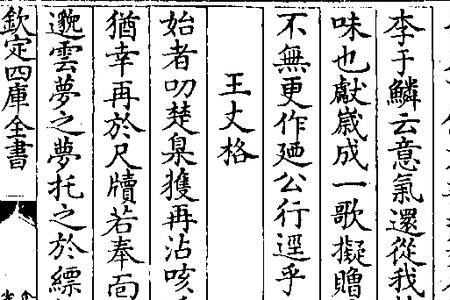 李于鱗云意氣還從我
味也獻嵗成一歌擬贈
不無更作廼公行逕乎
王丈格
始者叨楚臬獲再沾咳
猶幸再於尺牘若奉面
邈雲夢之夢托之於縹
欽定四庫全書